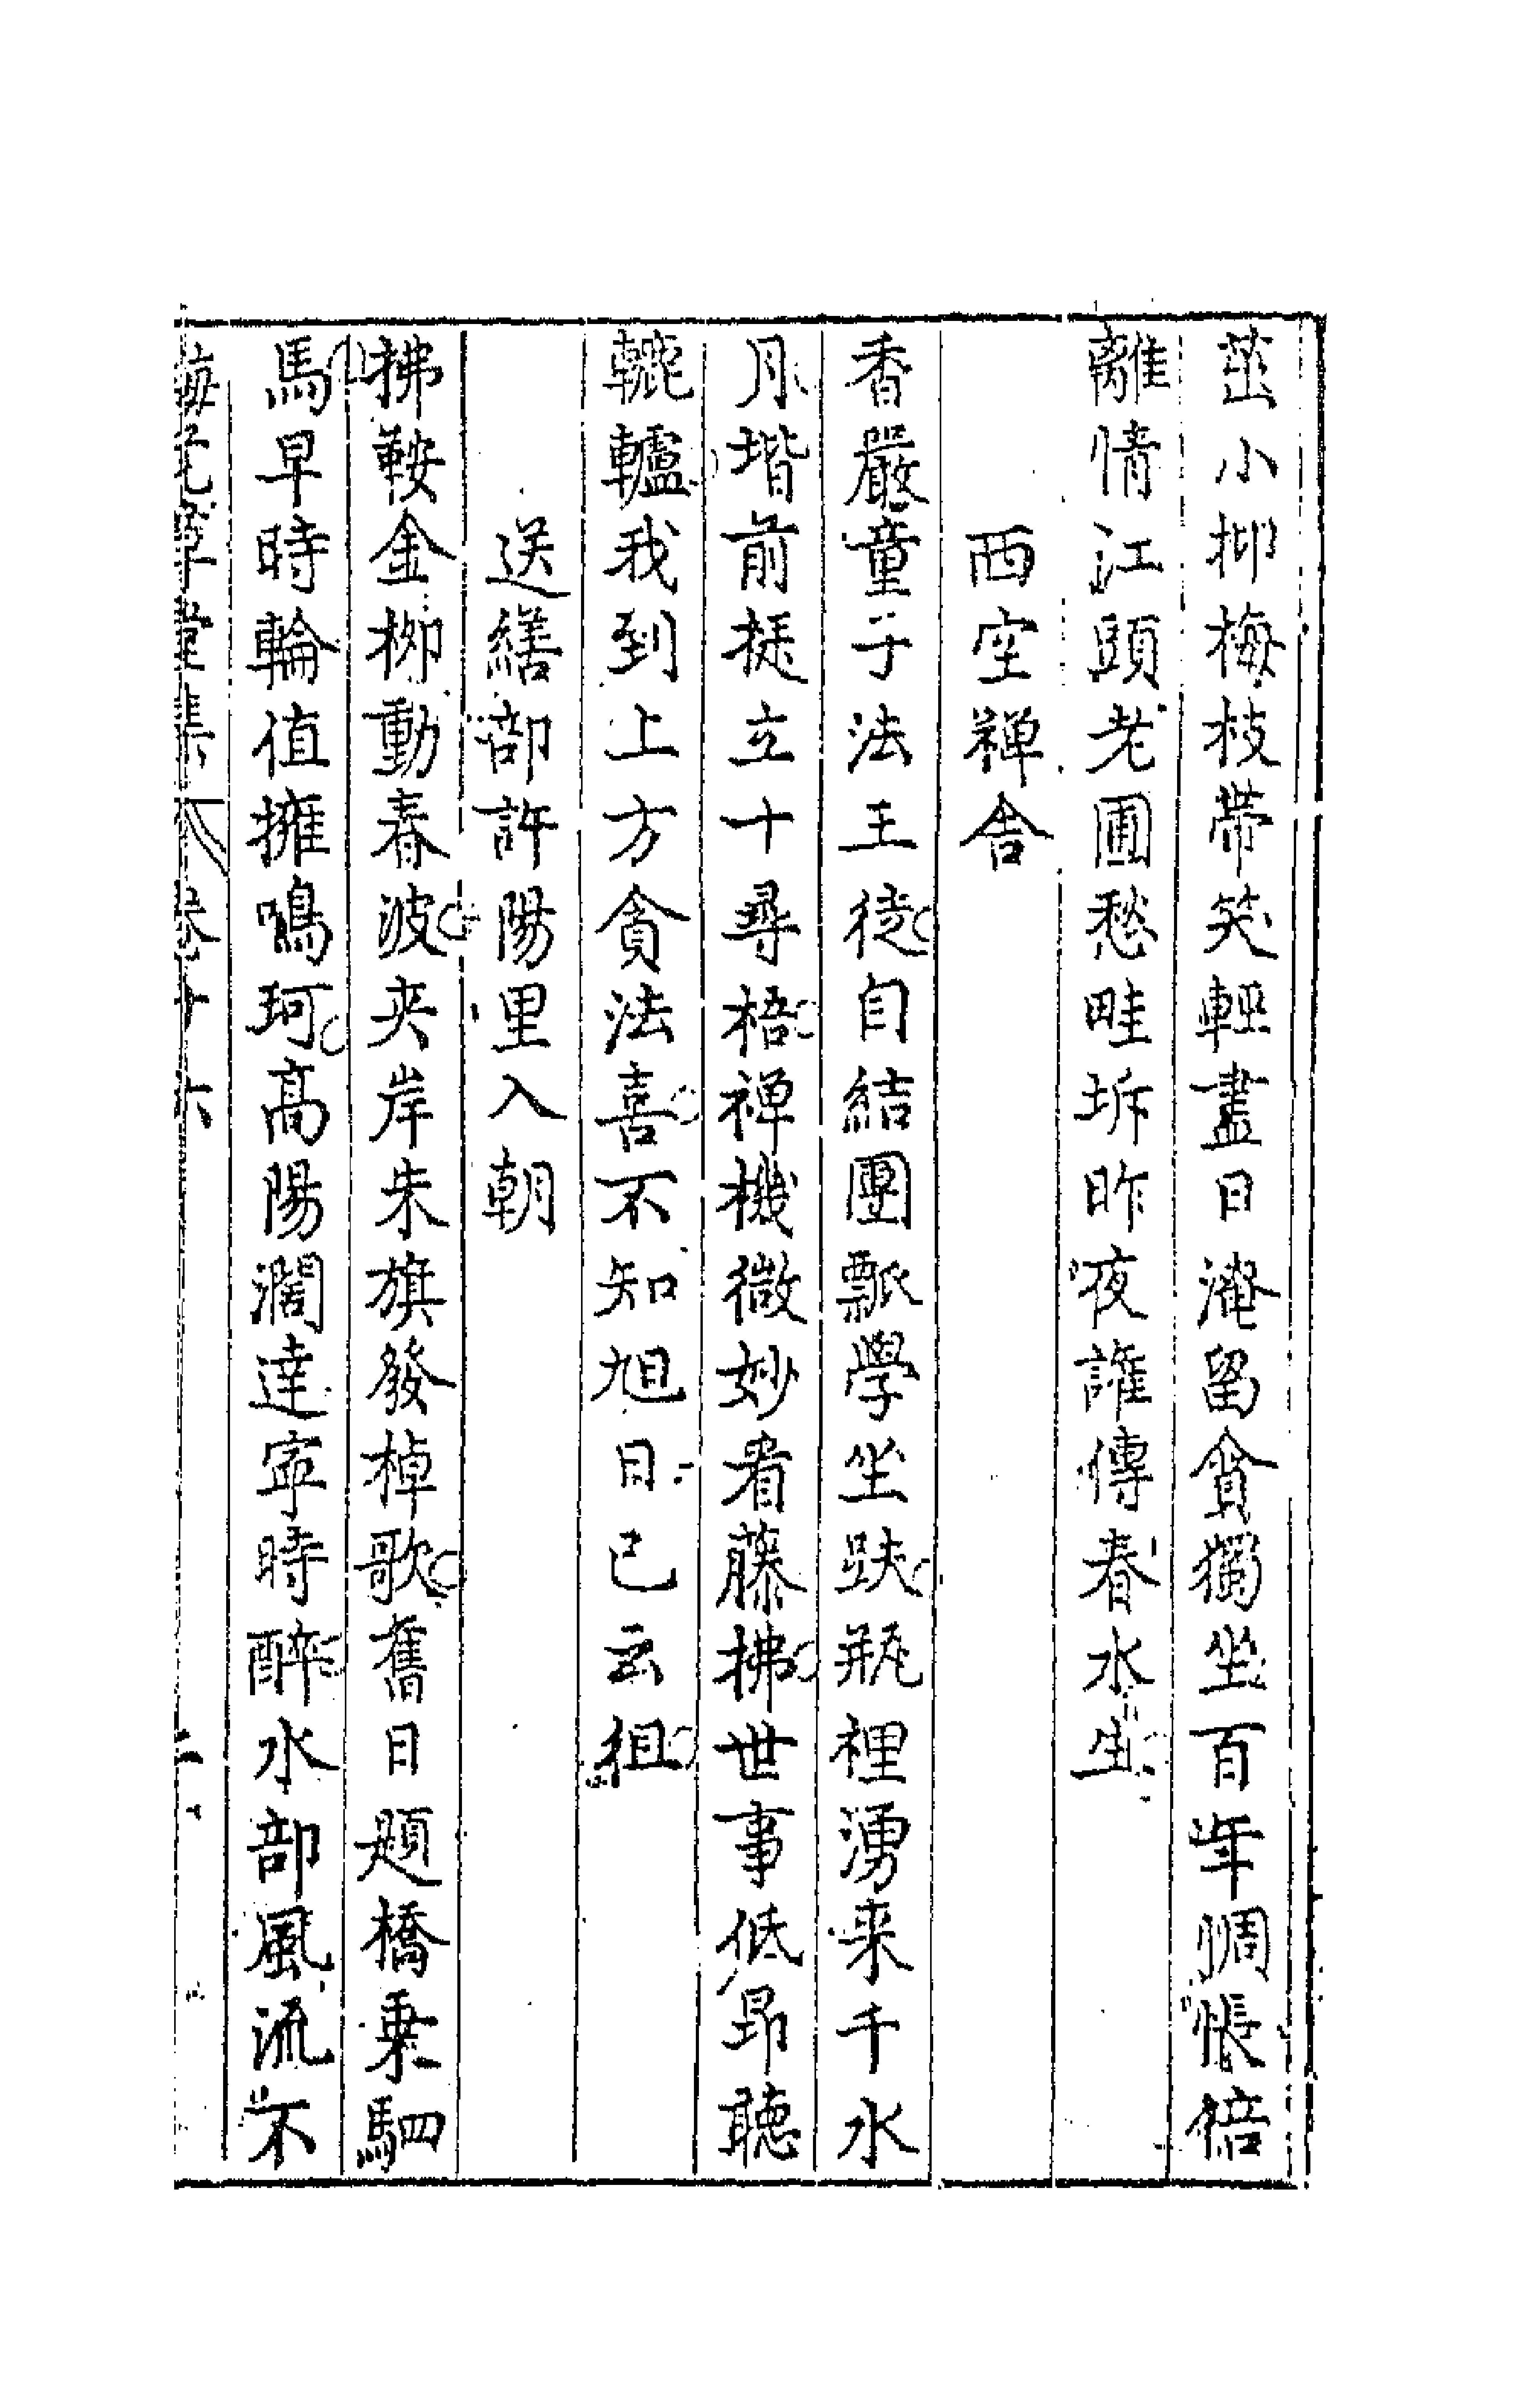 茁小抑梅枝帶笑輕盡日淹留貪獨坐百年惆悵倍
離情江頭老圃愁畦坼昨夜誰傳春水生
西空禪舍
香嚴童子法王徒自結團瓢學坐趺瓶裡湧来千水
月堦前挺立十尋梧禅機微妙看藤拂世事低昂聽
轆轤我到上方貪法喜不知旭日已云徂
送繕部許陽里入朝
拂鞍金柳動春波夾岸朱旗發棹歌舊日題橋乗駟
馬早時輪值擁鳴珂高陽濶達寧時醉水部風流不
梅花草堂集 卷十六 二